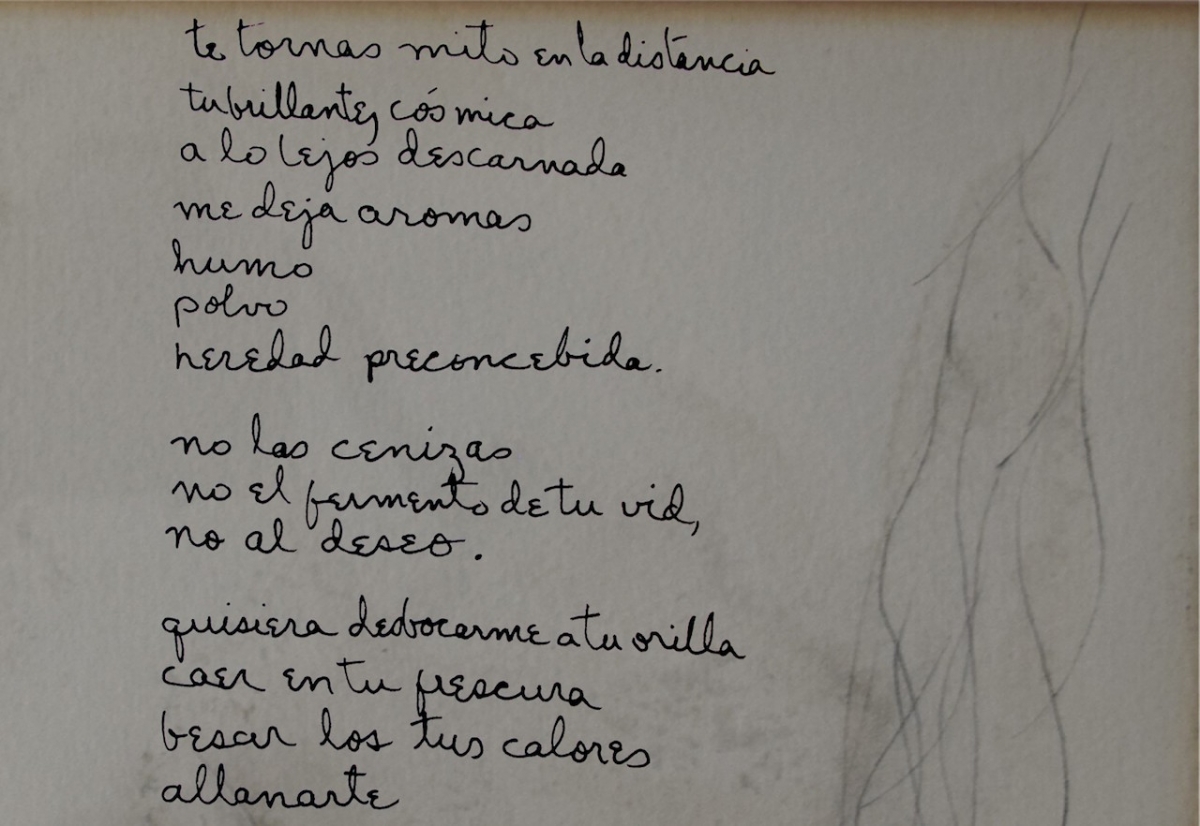 te tornas mito en la distancia
tu brillantez cósmica
a lo lejos descarnada
me deja aromas
humo
polvo
heredad preconcebida.
no las cenizas
no el fermento de tu vid,
no al deseo.
quisiera desbocarme a tu orilla
caer en tu frescura
besar los tus calores
allanarte